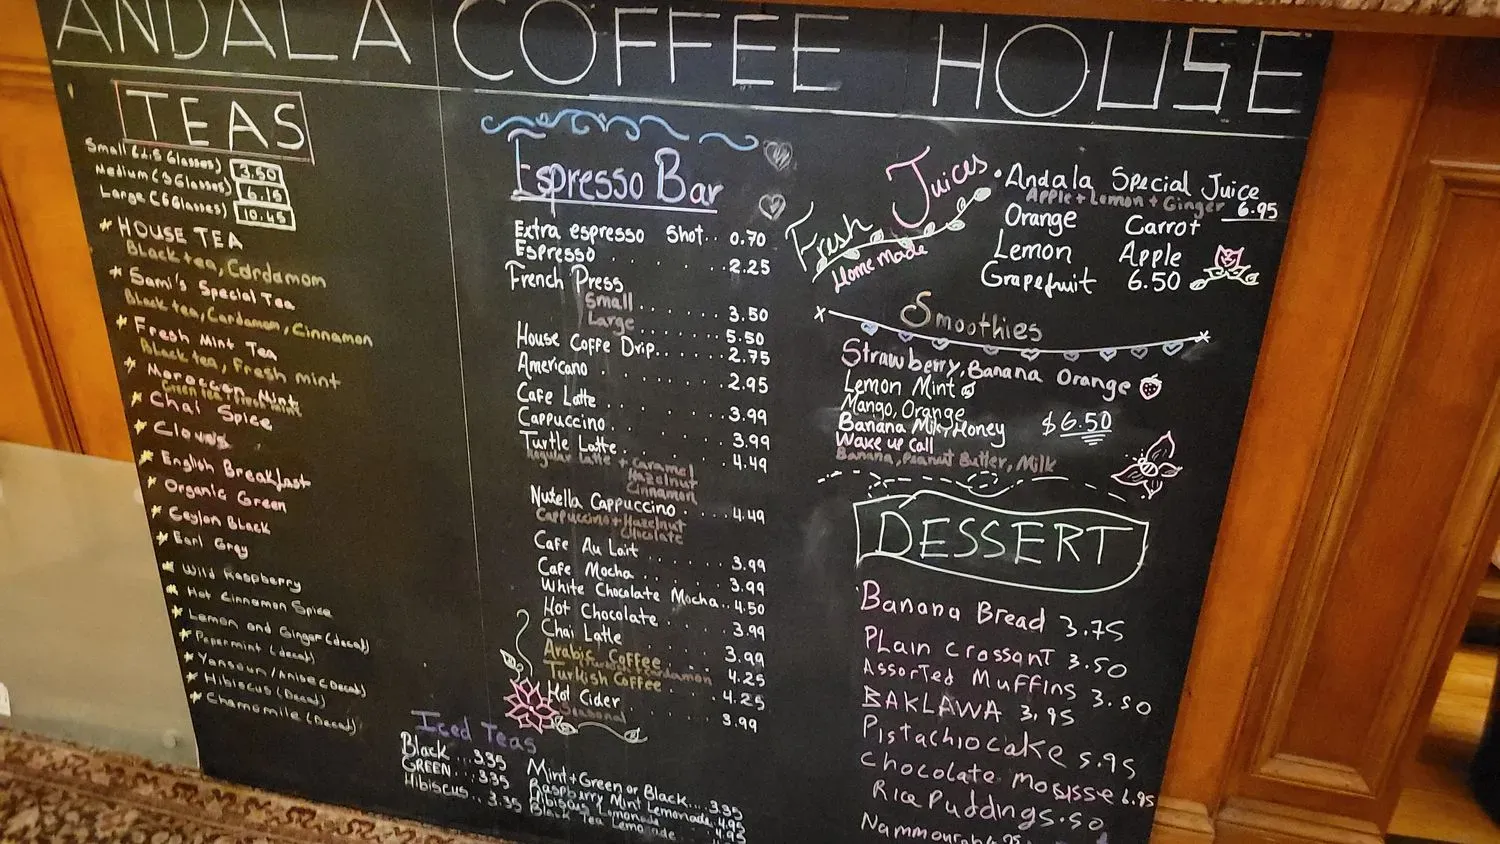 ANDALA COFFEE HOUSE
TEAS
Small (2.5 Glasses) 3.50
Medium (3 Glasses) 6.15
Large (6 Glasses) 10.45
HOUSE TEA
Black tea, Cardamom
Sami's Special Tea
Black tea, Cardamon, Cinnamon
Fresh Mint Tea
Black tea, Fresh mint
Moroccan Mint
Green tea + Fresh mint
Chai Spice
Clouds
English Breakfast
Organic Green
Ceylon Black
Earl Grey
Wild Raspberry
Hot Cinnamon Spice
Lemon and Ginger (decaf)
Pepermint (decaf)
Yansoun/Anise (Decaf)
Hibiscus (Decaf)
Chamomile (Decaf)
Espresso Bar
Extra espresso Shot.. 0.70
Espresso 2.25
French Press
Small 3.50
Large 5.50
House Coffe Drip 2.75
Americano 2.95
Cafe Latte 3.99
Cappuccino 3.99
Turtle Latte 4.49
Regular latte + Caramel
Hazelnut
Cinnamon
Nutella Cappuccino 4.49
Cappuccino + Hazelnut
Chocolate
Cafe Au Lait 3.99
Cafe Mocha 3.99
White Chocolate Mocha.. 4.50
Hot Chocolate 3.99
Chai Latte 3.99
Arabic Coffee 4.25
Turkish Coffee 4.25
Hot Cider 3.99
Seasonal
Iced Teas
Black... 3.35
GREEN... 3.35
Hibiscus.. 3.35
Mint + Green or Black.... 3.35
Raspberry Mint Lemonade. 4.95
Hibiscus Lemonade 4.95
Black Tea Lemonade
Fresh Juices
Homemade
Andala Special Juice
Apple + Lemon + Ginger 6.95
Orange Carrot
Lemon Apple
Grapefruit 6.50
Smoothies
Strawberry, Banana Orange
Lemon Mint
Mango, Orange
Banana Milk, Honey $6.50
Wake up Call
Banana, Peanut Butter, Milk
DESSERT
Banana Bread 3.75
PLain crossant 3.50
Assorted Muffins 3.50
BAKLAWA 3.95
Pistachio cake 5.95
Chocolate
Rice Puddings.50